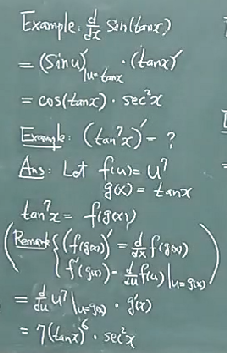 Example: d/dx sin(tanx)
= (sin u)'|u=tanx · (tanx)'
= cos(tanx) · sec²x
Example: (tan⁷x)' = ?
Ans: Let f(u) = u⁷
g(x) = tanx
tan⁷x = f(g(x))
(Remark { (f(g(x)))' = d/dx f(g(x))
f'(g(x)) = d/du f(u)|u=g(x) )
= d/du u⁷|u=g(x) · g'(x)
= 7(tanx)⁶ · sec²x